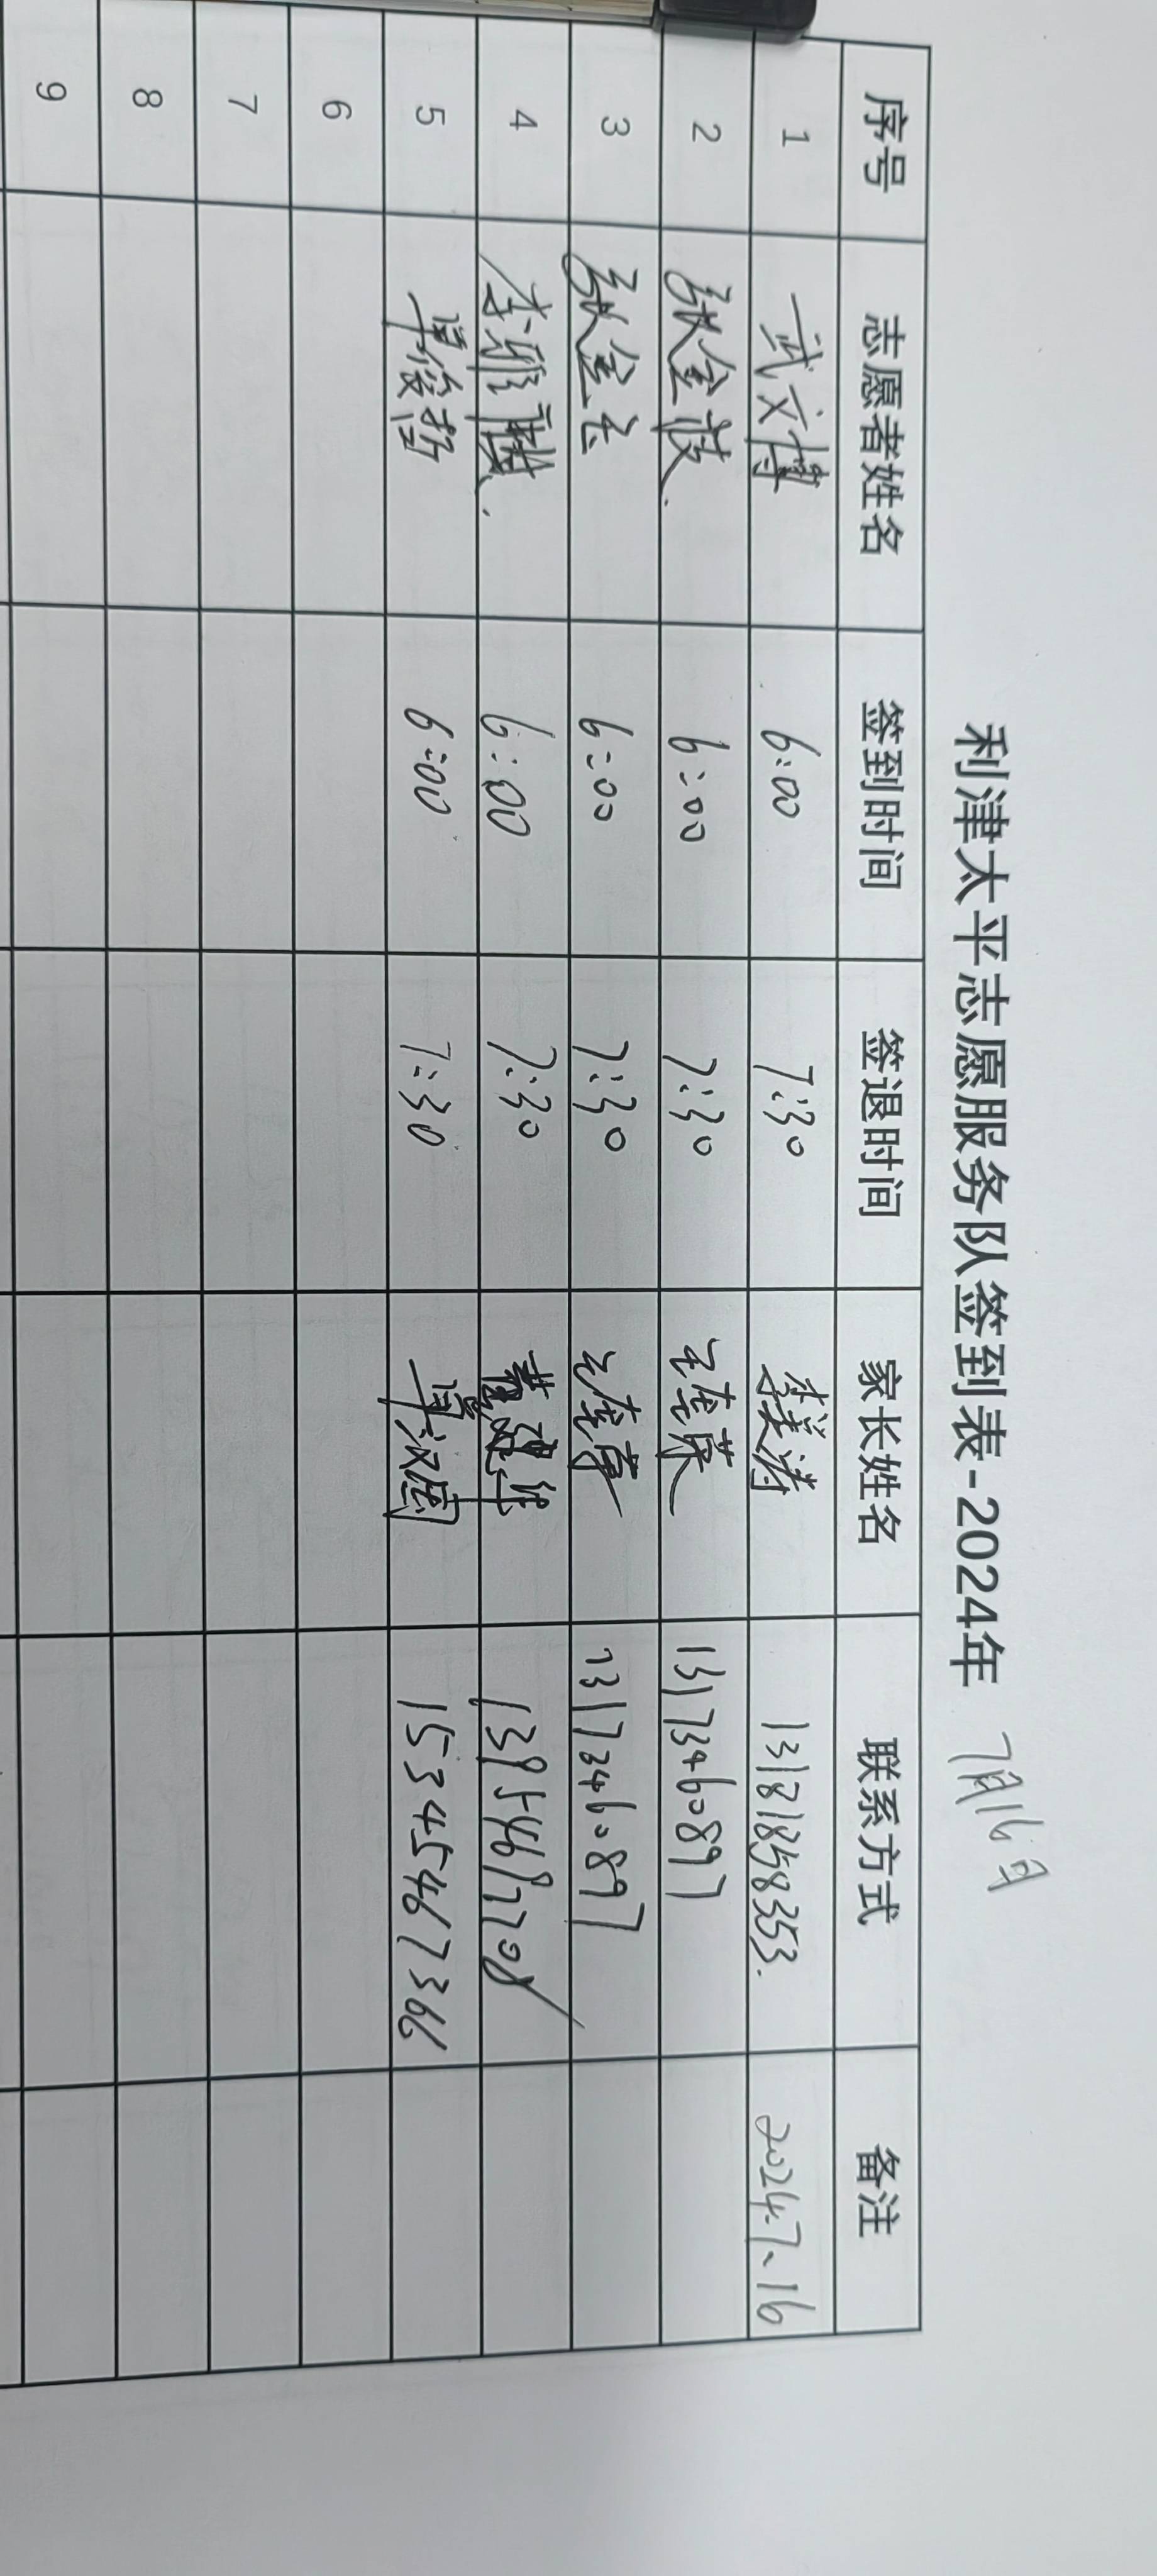 利津太平志愿服务队签到表-2024年 7月16日
序号 志愿者姓名 签到时间 签退时间 家长姓名 联系方式 备注
1 武文博 6:00 7:30 李美涛 13181858353. 2024.7、16
2 张金 6:00 7:30 13173460897
3 张金 6:00 7:30 13173460897
4 李雅 6:00 7:30 13954682208
5 单俊哲 6:00 7:30 单汉国 15345467366
6
7
8
9